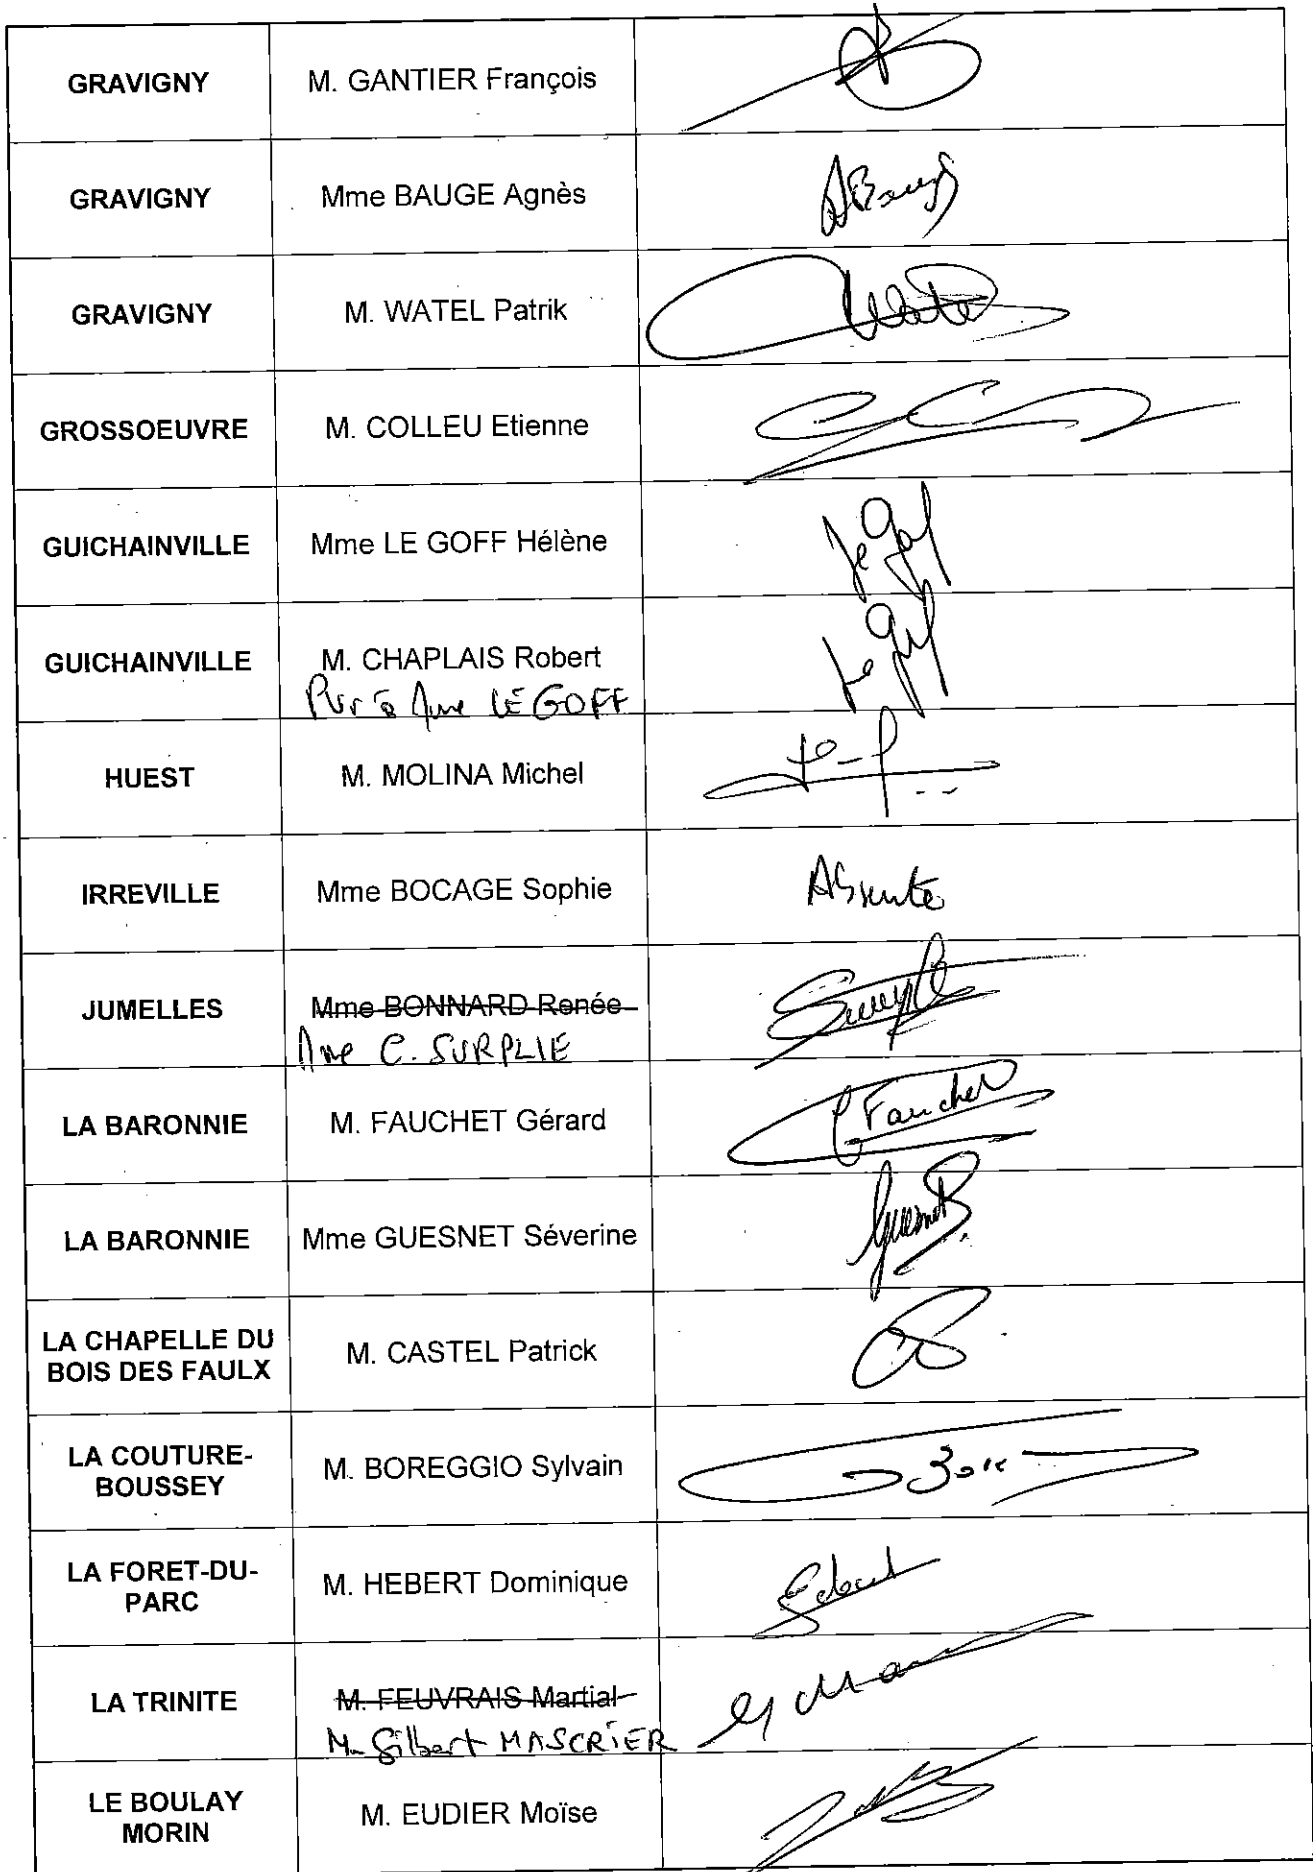 GRAVIGNY M. GANTIER François
GRAVIGNY Mme BAUGE Agnès
GRAVIGNY M. WATEL Patrik
GROSSOEUVRE M. COLLEU Etienne
GUICHAINVILLE Mme LE GOFF Hélène
GUICHAINVILLE M. CHAPLAIS Robert
Pvr à Mme LE GOFF
HUEST M. MOLINA Michel
IRREVILLE Mme BOCAGE Sophie Absente
JUMELLES Mme BONNARD Renée
Mme C. SURPLIE
LA BARONNIE M. FAUCHET Gérard Fauchet
LA BARONNIE Mme GUESNET Séverine Guesnet
LA CHAPELLE DU
BOIS DES FAULX M. CASTEL Patrick
LA COUTURE-
BOUSSEY M. BOREGGIO Sylvain
LA FORET-DU-
PARC M. HEBERT Dominique
LA TRINITE M. FEUVRAIS Martial
M. Gilbert MASCRIER
LE BOULAY
MORIN M. EUDIER Moïse